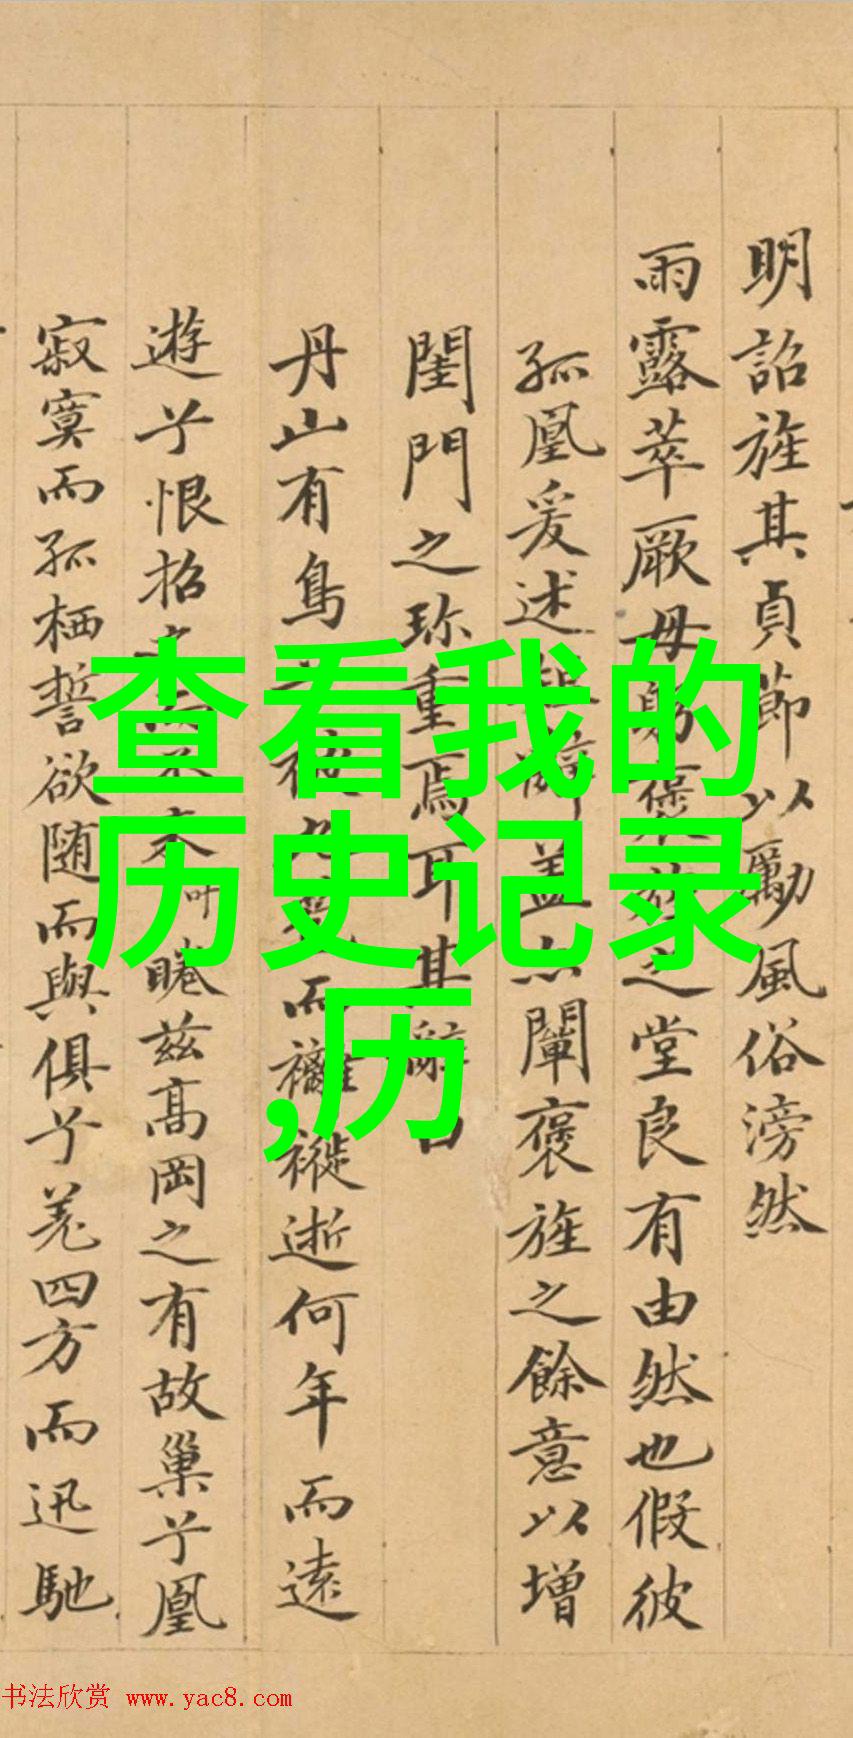 明詔旌其貞節以勵風俗滂然
雨露萃厥母賜褒旌之堂良有由然也假彼
孤凰爰述短辭蓋以闡褒旌之餘意以增
閨門之珎重焉耳其辭曰
丹山有鳥九而襳褷逝何年而遠
遊兮恨招之不来叶睠茲高岡之有故巢兮凰
寂寞而孤栖誓欲随而與俱兮羌四方而迅馳
查看我的
历史记录
,历
书法欣赏 www.yac8.com